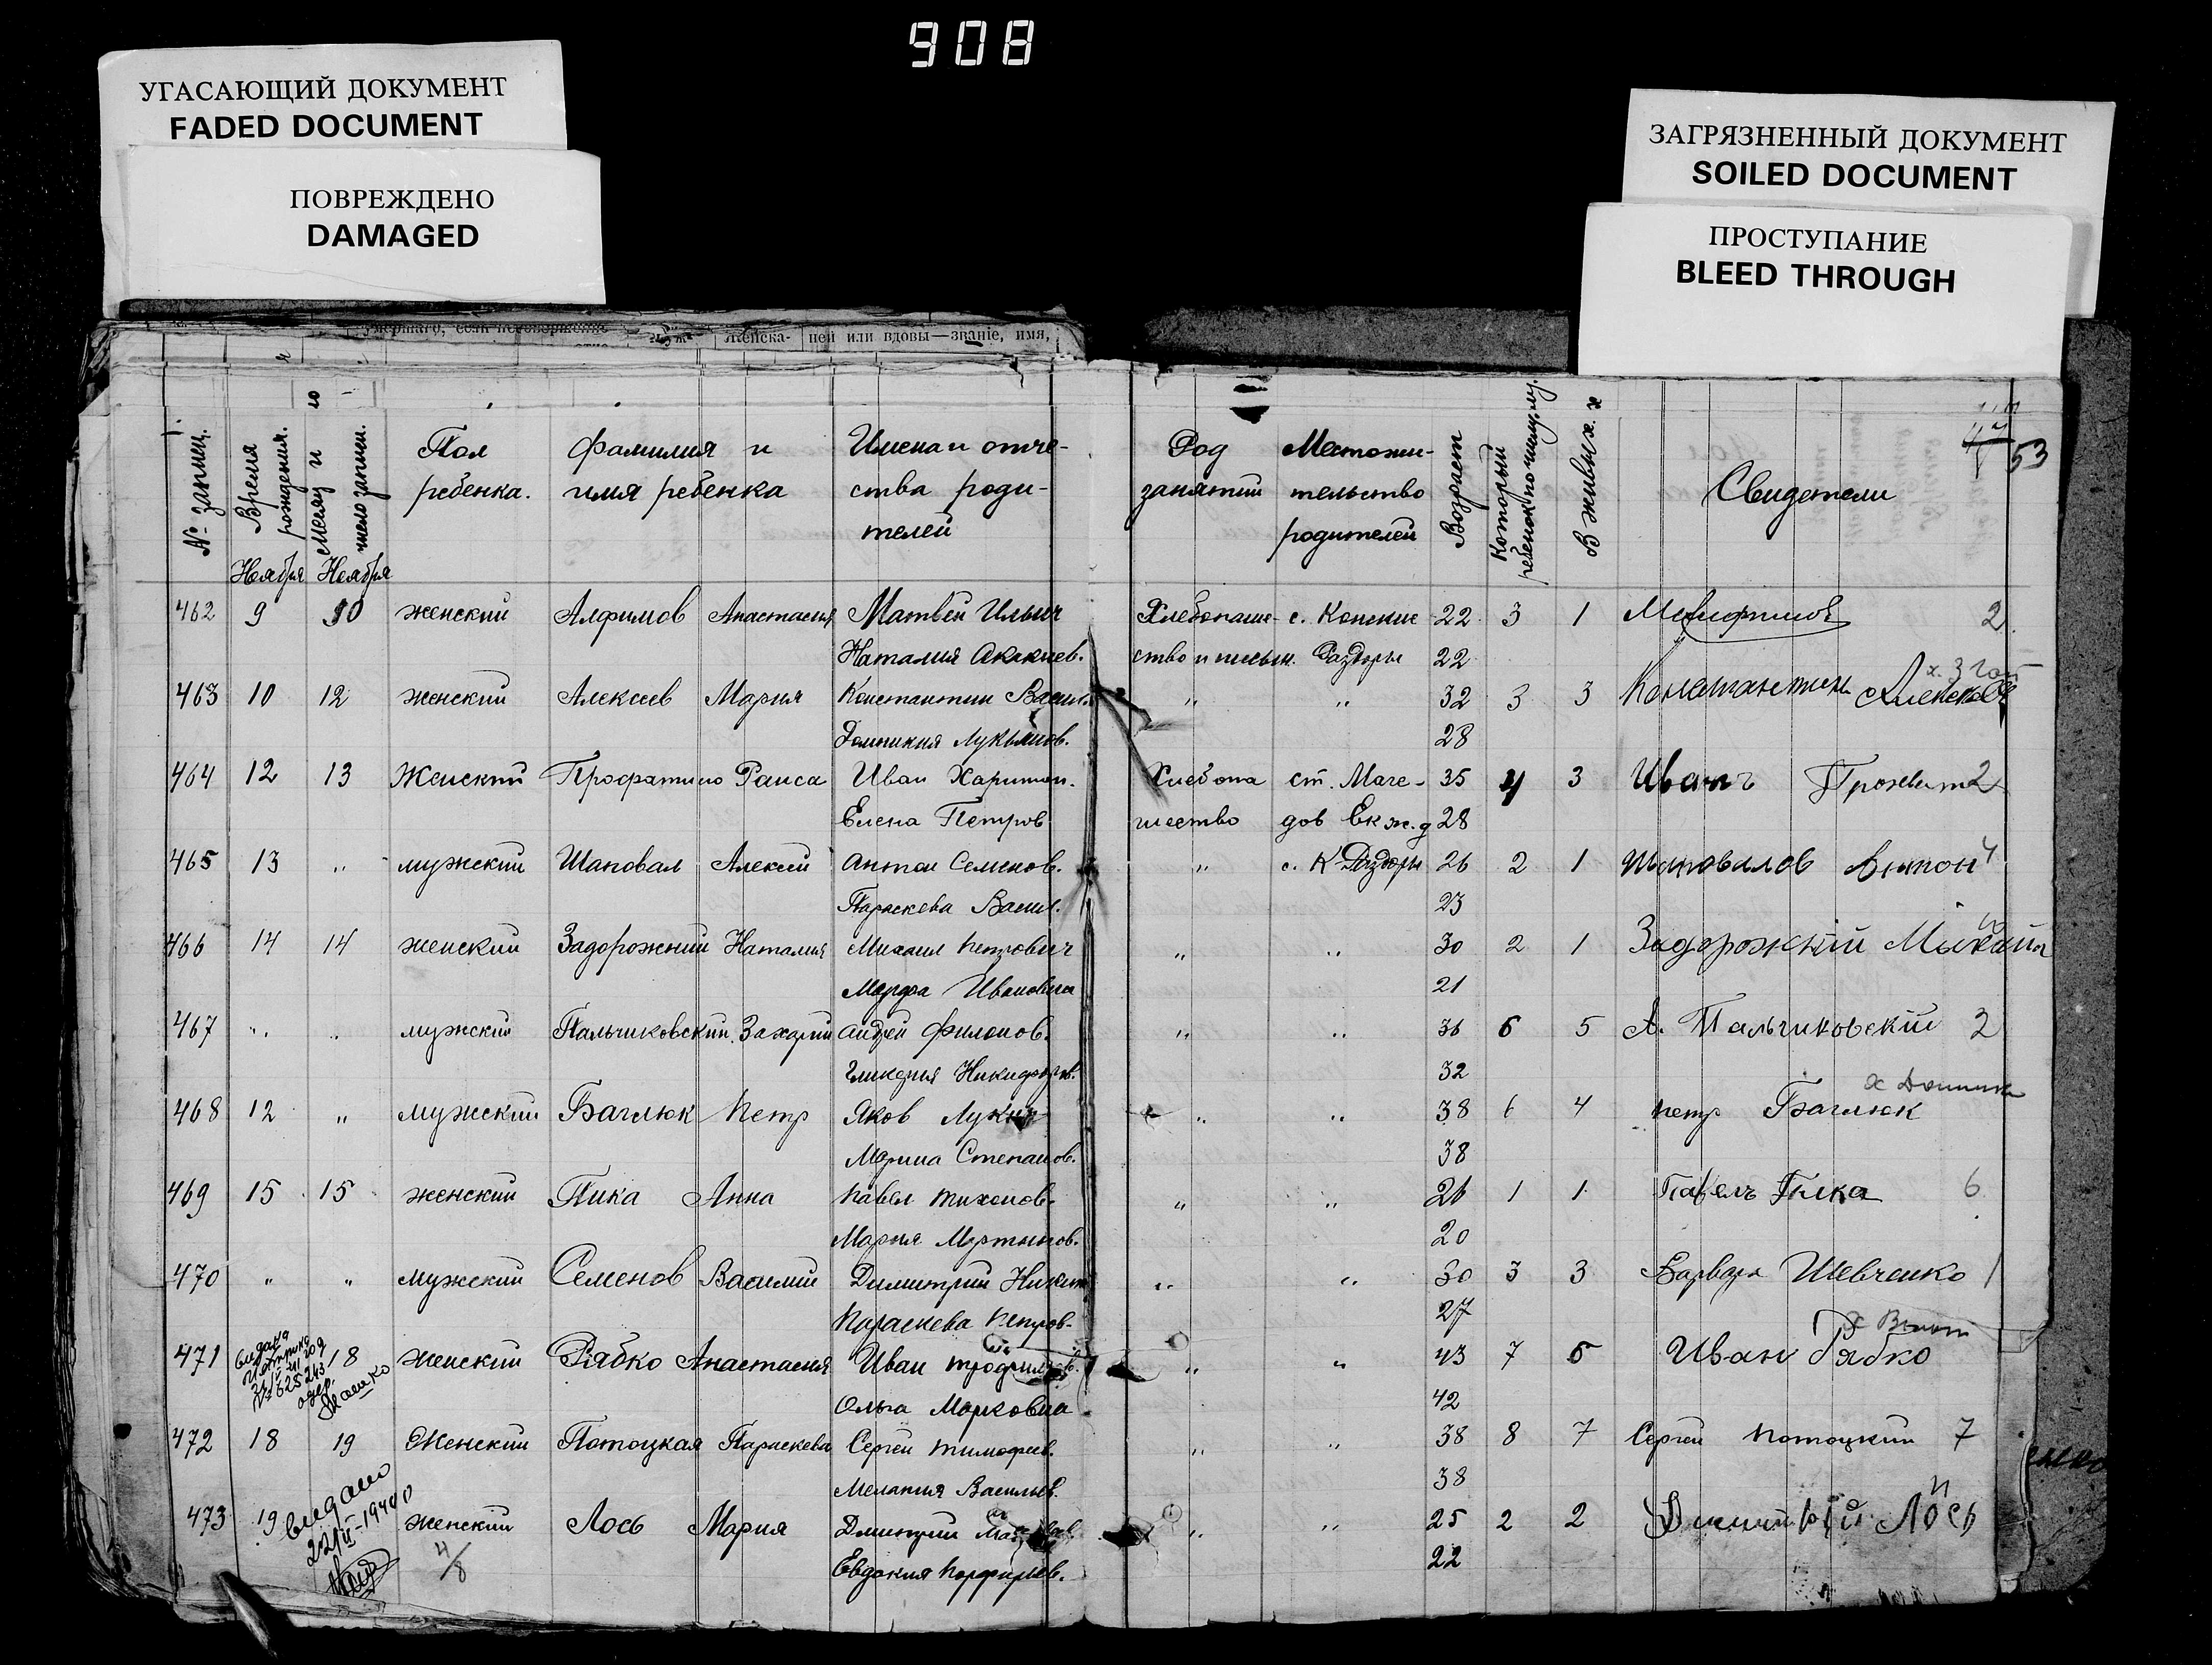 908
УГАСАЮЩИЙ ДОКУМЕНТ
FADED DOCUMENT
ПОВРЕЖДЕНО
DAMAGED
ЗАГРЯЗНЕННЫЙ ДОКУМЕНТ
SOILED DOCUMENT
ПРОСТУПАНИЕ
BLEED THROUGH
ней или вдовы—званіе, имя,
53
№ записи. Время рождения. Месяц и число записи. Пол ребенка. Фамилия и имя ребенка Имена и отчества родителей Род занятий Местожительство родителей Возраст Который ребенок по числу. В живых Свидетели
Ноября Ноября
462 9 10 женский Алфимов Анастасия Матвей Ильич Хлебопаше- с. Конские 22 3 1 2
Наталия Акакиев. ство и письм. Раздоры 22
463 10 12 женский Алексеев Мария Константин Васил. " " 32 3 3 Константин Алексеев
Домникия Лукьянов. 28
464 12 13 Женский Раиса Иван Харитон. Хлебопа ст. Маге- 35 4 3 Иванъ 2
Елена Петров. шество дов Ек ж.д 28
465 13 " мужский Шаповал Алексей Антон Семенов. " с. К-Раздоры 26 2 1 Шаповалов Антон
Параскева Васил. 23
466 14 14 женский Задорожний Наталия Михаил Петрович " " 30 2 1
Марфа Ивановна 21
467 " " мужский Пальчиковский Захарий Андрей Филонов. " " 36 6 5 А. Пальчиковскій 2
Гликерия Никифоров. 32
468 12 " мужский Баглюк Петр Яков Лукич " " 38 6 4 Петр Баглюк
Марина Степанов. 38
469 15 15 женский Пика Анна Павел Тихонов. " " 26 1 1 Павелъ Пика 6
Мария Мартынов. 20
470 " " мужский Семенов Василий Димитрий Никит " " 30 3 3 Варвара Шевченко 1
Параскева Петров. 27
471 18 женский Рябко Анастасия Иван " " 43 7 6 Иван Рябко
Ольга Марковна 42
472 18 19 Женский Потоцкая Параскева Сергей Тимофеев. " " 38 8 7 Сергей Потоцкий 7
Мелания Васильев. 38
473 19 женский Лось Мария Дмитрий " " 25 2 2 Лось
видано
Евдокия Порфирьев. 22
4/8